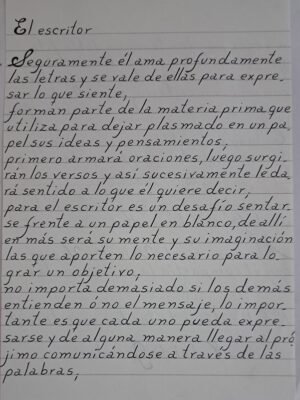 El escritor
Seguramente él ama profundamente
las letras y se vale de ellas para expre-
sar lo que siente,
forman parte de la materia prima que
utiliza para dejar plasmado en un pa-
pel sus ideas y pensamientos,
primero armará oraciones, luego surgi-
rán los versos y así sucesivamente le da-
rá sentido a lo que él quiere decir,
para el escritor es un desafío sentar-
se frente a un papel en blanco, de allí
en más será su mente y su imaginación
las que aporten lo necesario para lo-
grar un objetivo,
no importa demasiado si los demás
entienden ó no el mensaje, lo impor-
tante es que cada uno pueda expre-
sarse y de alguna manera llegar al pró-
jimo comunicándose a través de las
palabras,